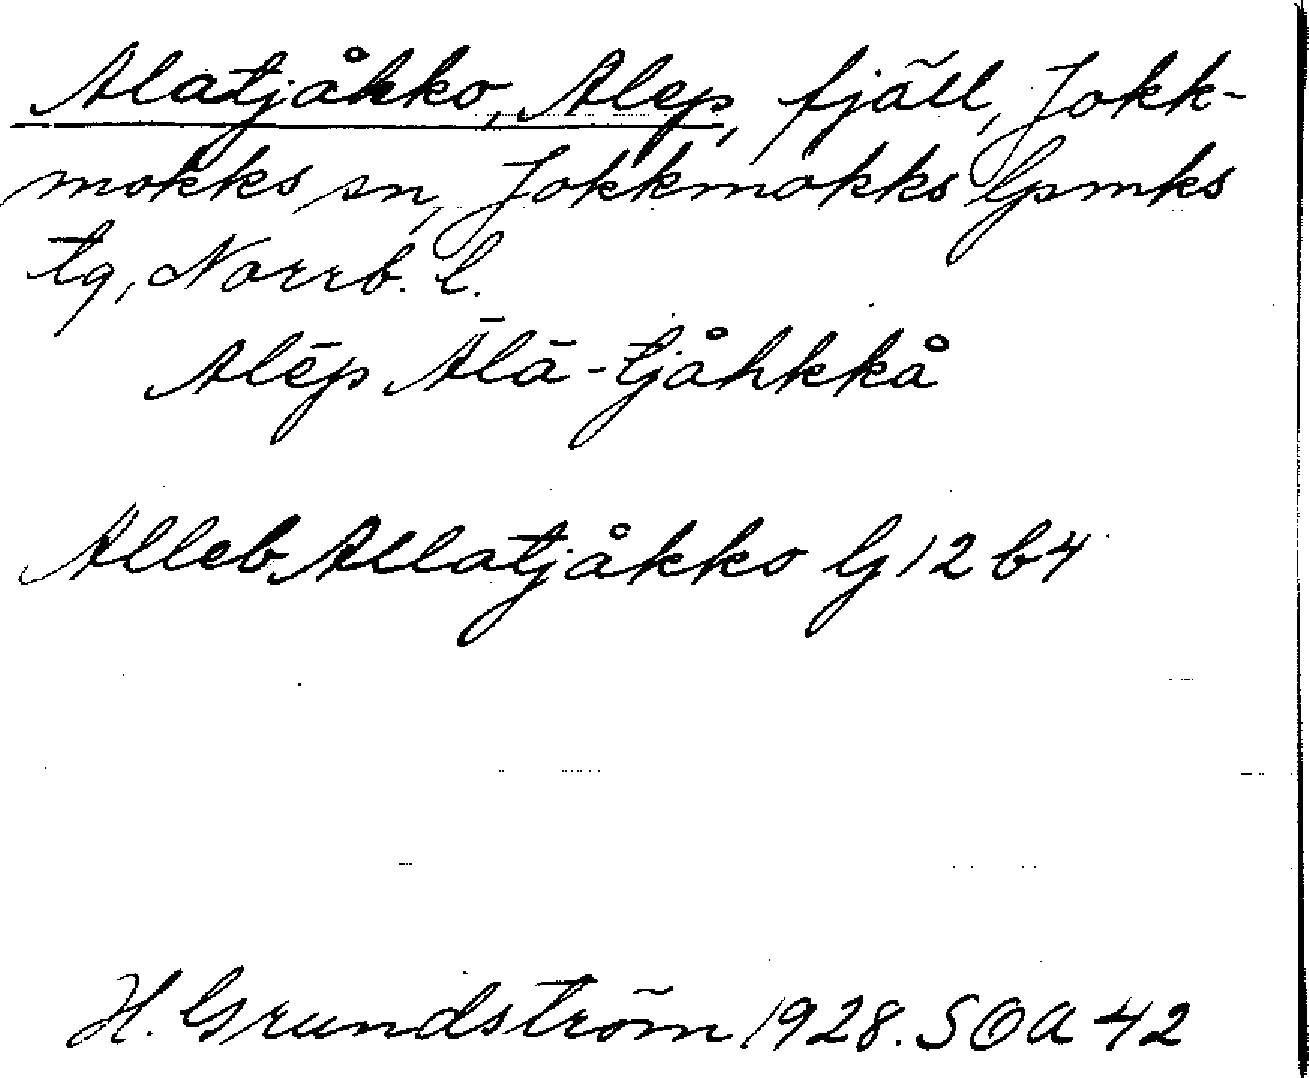 Alatjåkko, Alep, fjäll, Jokk-
mokks sn, Jokkmokks lpmks
tg, Norrb. l.
Alēp Ālā-tjåhkkå
Alleb Allatjåkko G12 b4
H. Grundström 1928. SOA 42